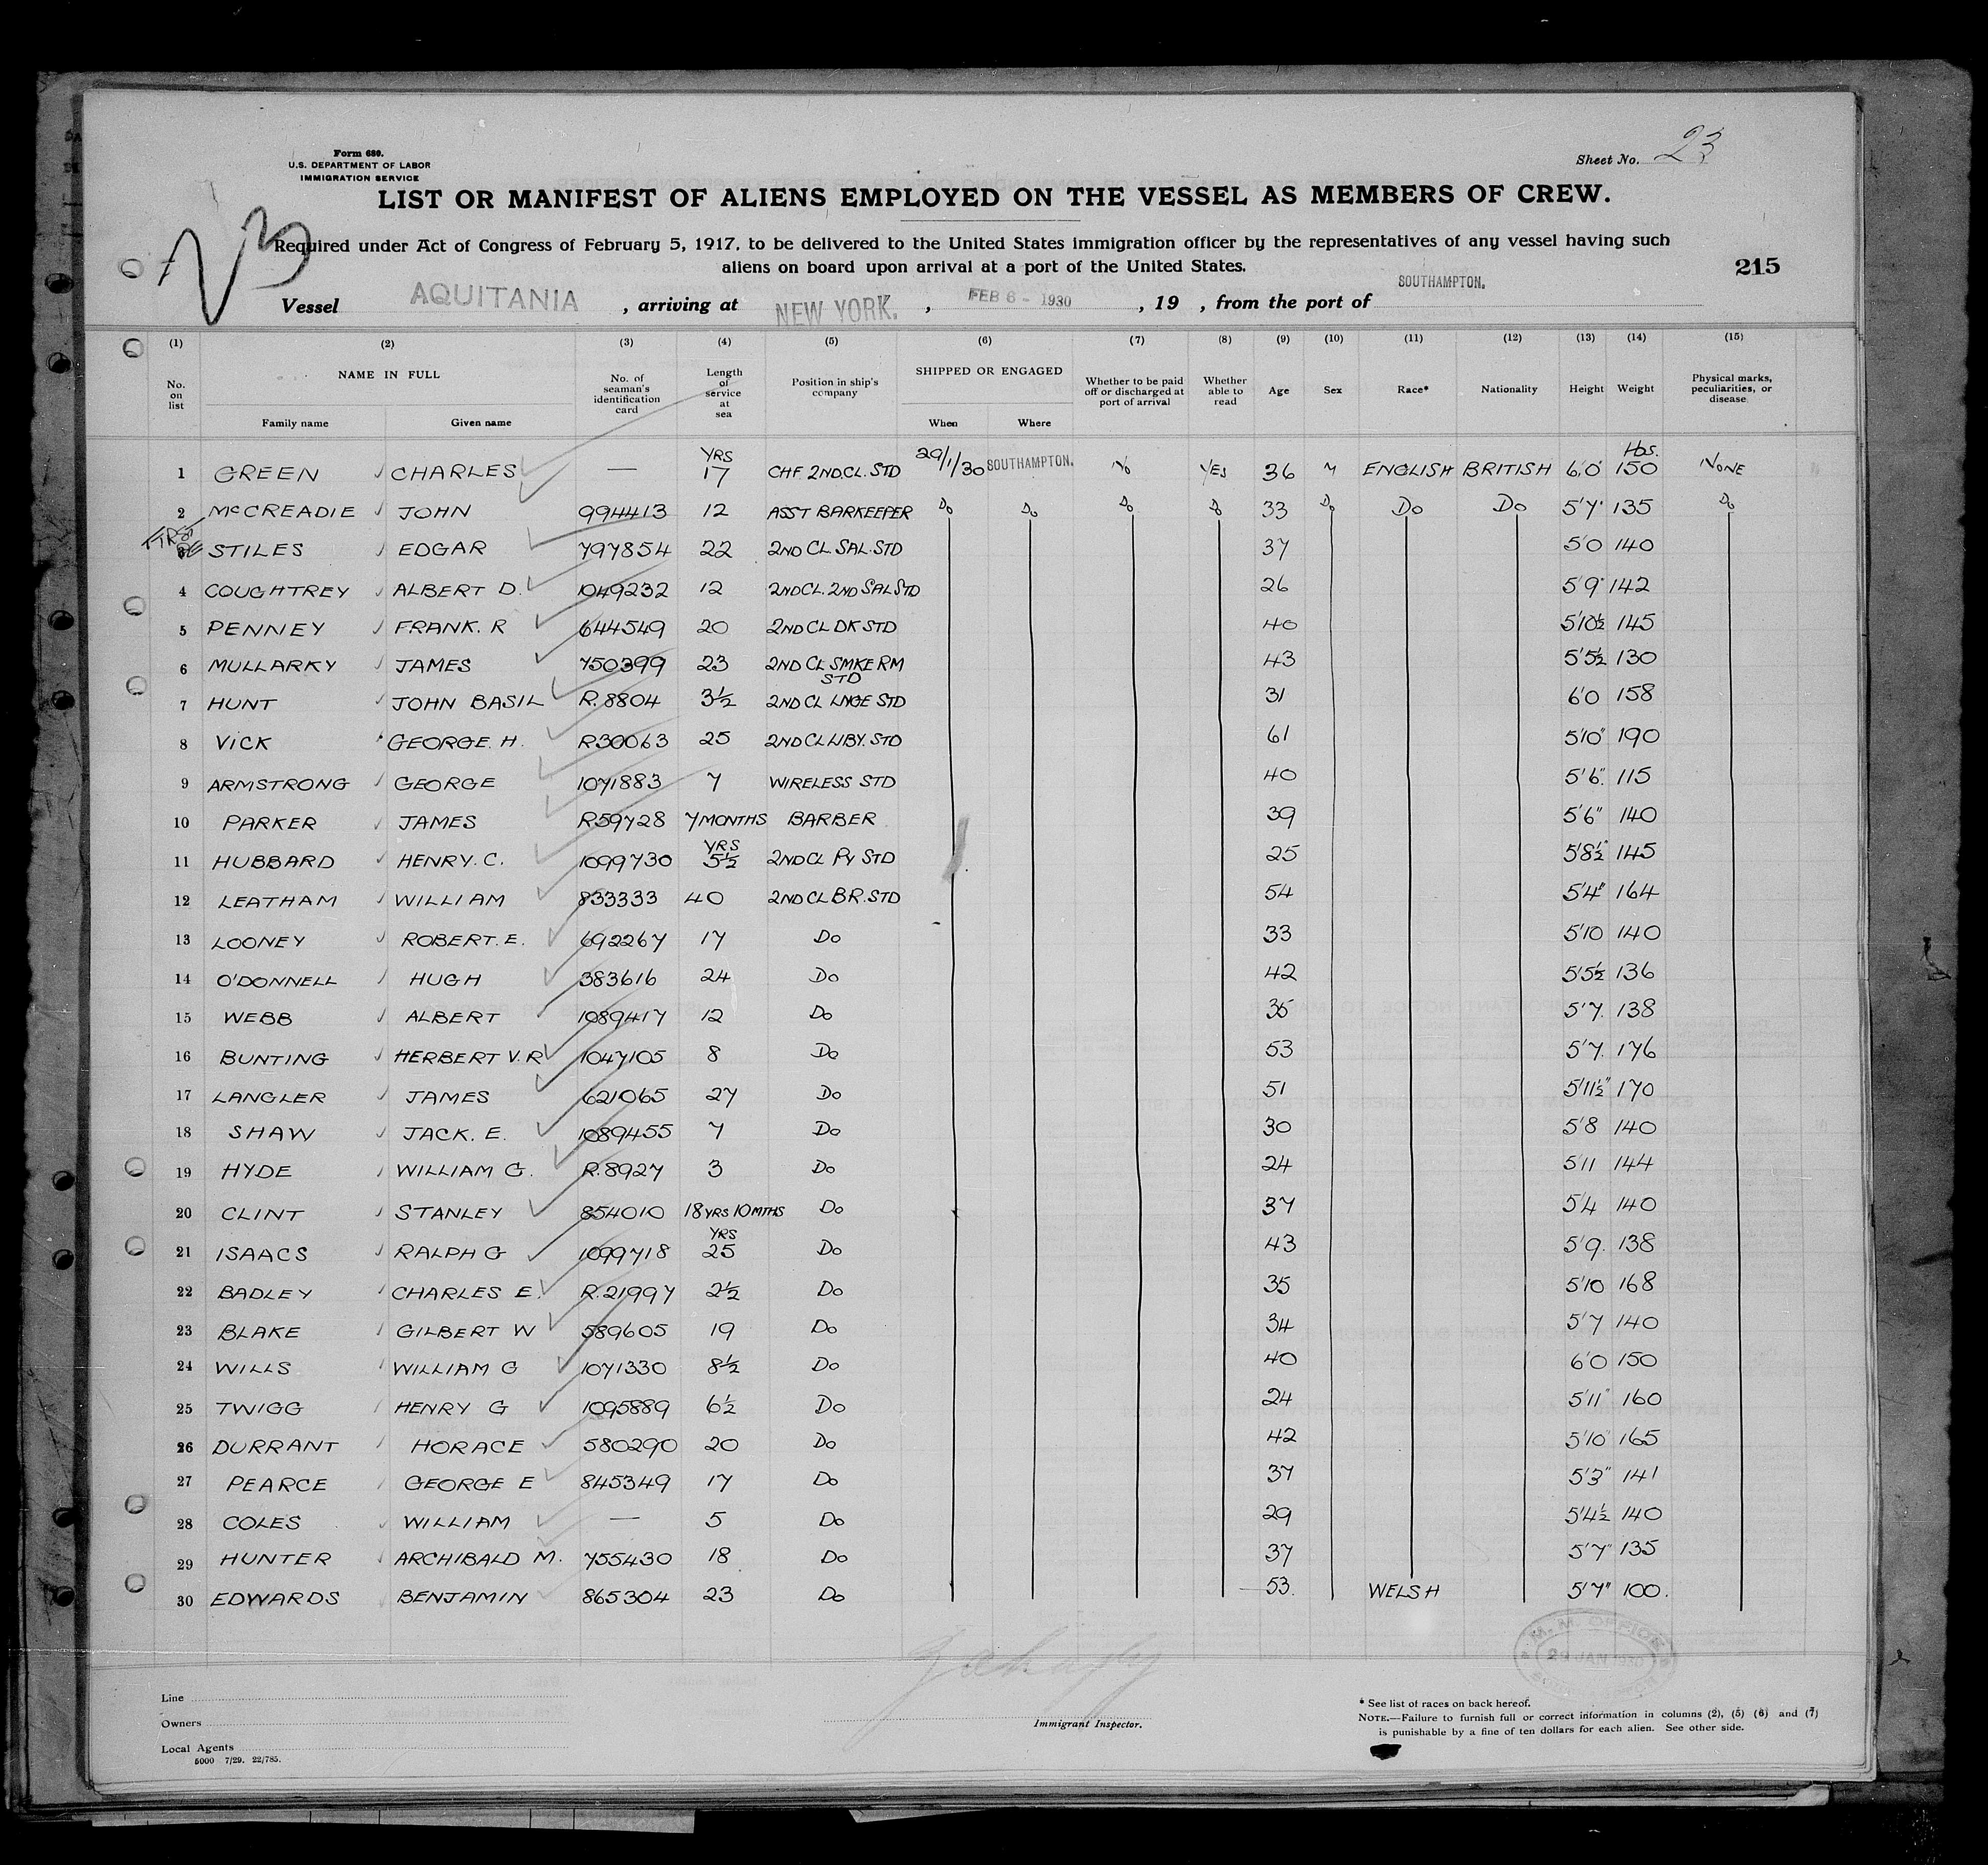 Form 680.
U.S. DEPARTMENT OF LABOR
IMMIGRATION SERVICE
Sheet No. 23
LIST OR MANIFEST OF ALIENS EMPLOYED ON THE VESSEL AS MEMBERS OF CREW.
Required under Act of Congress of February 5, 1917, to be delivered to the United States immigration officer by the representatives of any vessel having such
aliens on board upon arrival at a port of the United States.
215
Vessel AQUITANIA, arriving at NEW YORK., FEB 6 - 1930, 19 , from the port of SOUTHAMPTON.
(1) (2) (3) (4) (5) (6) (7) (8) (9) (10) (11) (12) (13) (14) (15)
No. on list NAME IN FULL Family name Given name No. of seaman's identification card Length of service at sea Position in ship's company SHIPPED OR ENGAGED When Where Whether to be paid off or discharged at port of arrival Whether able to read Age Sex Race* Nationality Height Weight Physical marks, peculiarities, or disease
1 GREEN CHARLES — YRS 17 CHF. 2ND.CL. STD 29/1/30 SOUTHAMPTON. No YES 36 M ENGLISH BRITISH 6'0" lbs. 150 NONE
2 McCREADIE JOHN 994413 12 ASST BARKEEPER Do Do Do Do 33 Do Do Do 5'7" 135 Do
3 STILES EDGAR 797854 22 2ND CL. SAL. STD 37 5'0 140
4 COUGHTREY ALBERT D. 1049232 12 2ND CL. 2ND SAL STD 26 5'9" 142
5 PENNEY FRANK. R 644549 20 2ND CL DK STD 40 5'10½ 145
6 MULLARKY JAMES 750399 23 2ND CL SMKE RM STD 43 5'5½ 130
7 HUNT JOHN BASIL R.8804 3½ 2ND CL LNGE STD 31 6'0 158
8 VICK GEORGE. H. R30063 25 2ND CL LIBY. STD 61 5'10" 190
9 ARMSTRONG GEORGE 1071883 7 WIRELESS STD 40 5'6". 115
10 PARKER JAMES R59728 7 MONTHS BARBER 39 5'6" 140
11 HUBBARD HENRY. C. 1099730 YRS 5½ 2ND CL PY STD 25 5'8½" 145
12 LEATHAM WILLIAM 833333 40 2ND CL BR. STD 54 5'4" 164
13 LOONEY ROBERT. E. 692267 17 Do 33 5'10 140
14 O'DONNELL HUGH 383616 24 Do 42 5'5½ 136
15 WEBB ALBERT 1089417 12 Do 35 5'7. 138
16 BUNTING HERBERT V. R 1047105 8 Do 53 5'7. 176
17 LANGLER JAMES 621065 27 Do 51 5'11½" 170
18 SHAW JACK. E. 1089455 7 Do 30 5'8 140
19 HYDE WILLIAM G. R.8927 3 Do 24 5'11 144
20 CLINT STANLEY 854010 18 YRS 10 MTHS Do 37 5'4 140
21 ISAACS RALPH G 1099718 YRS 25 Do 43 5'9. 138
22 BADLEY CHARLES E. R.21997 2½ Do 35 5'10 168
23 BLAKE GILBERT W 589605 19 Do 34 5'7 140
24 WILLS WILLIAM G 1071330 8½ Do 40 6'0 150
25 TWIGG HENRY G 1095889 6½ Do 24 5'11" 160
26 DURRANT HORACE 580290 20 Do 42 5'10" 165
27 PEARCE GEORGE E 845349 17 Do 37 5'3" 141
28 COLES WILLIAM — 5 Do 29 5'4½ 140
29 HUNTER ARCHIBALD M. 755430 18 Do 37 5'7" 135
30 EDWARDS BENJAMIN 865304 23 Do 53. WELSH 5'7" 100.
29 JAN 1930
Line
Owners
Local Agents
5000 7/29. 22/785.
Immigrant Inspector.
* See list of races on back hereof.
NOTE.—Failure to furnish full or correct information in columns (2), (5) (6) and (7)
is punishable by a fine of ten dollars for each alien. See other side.